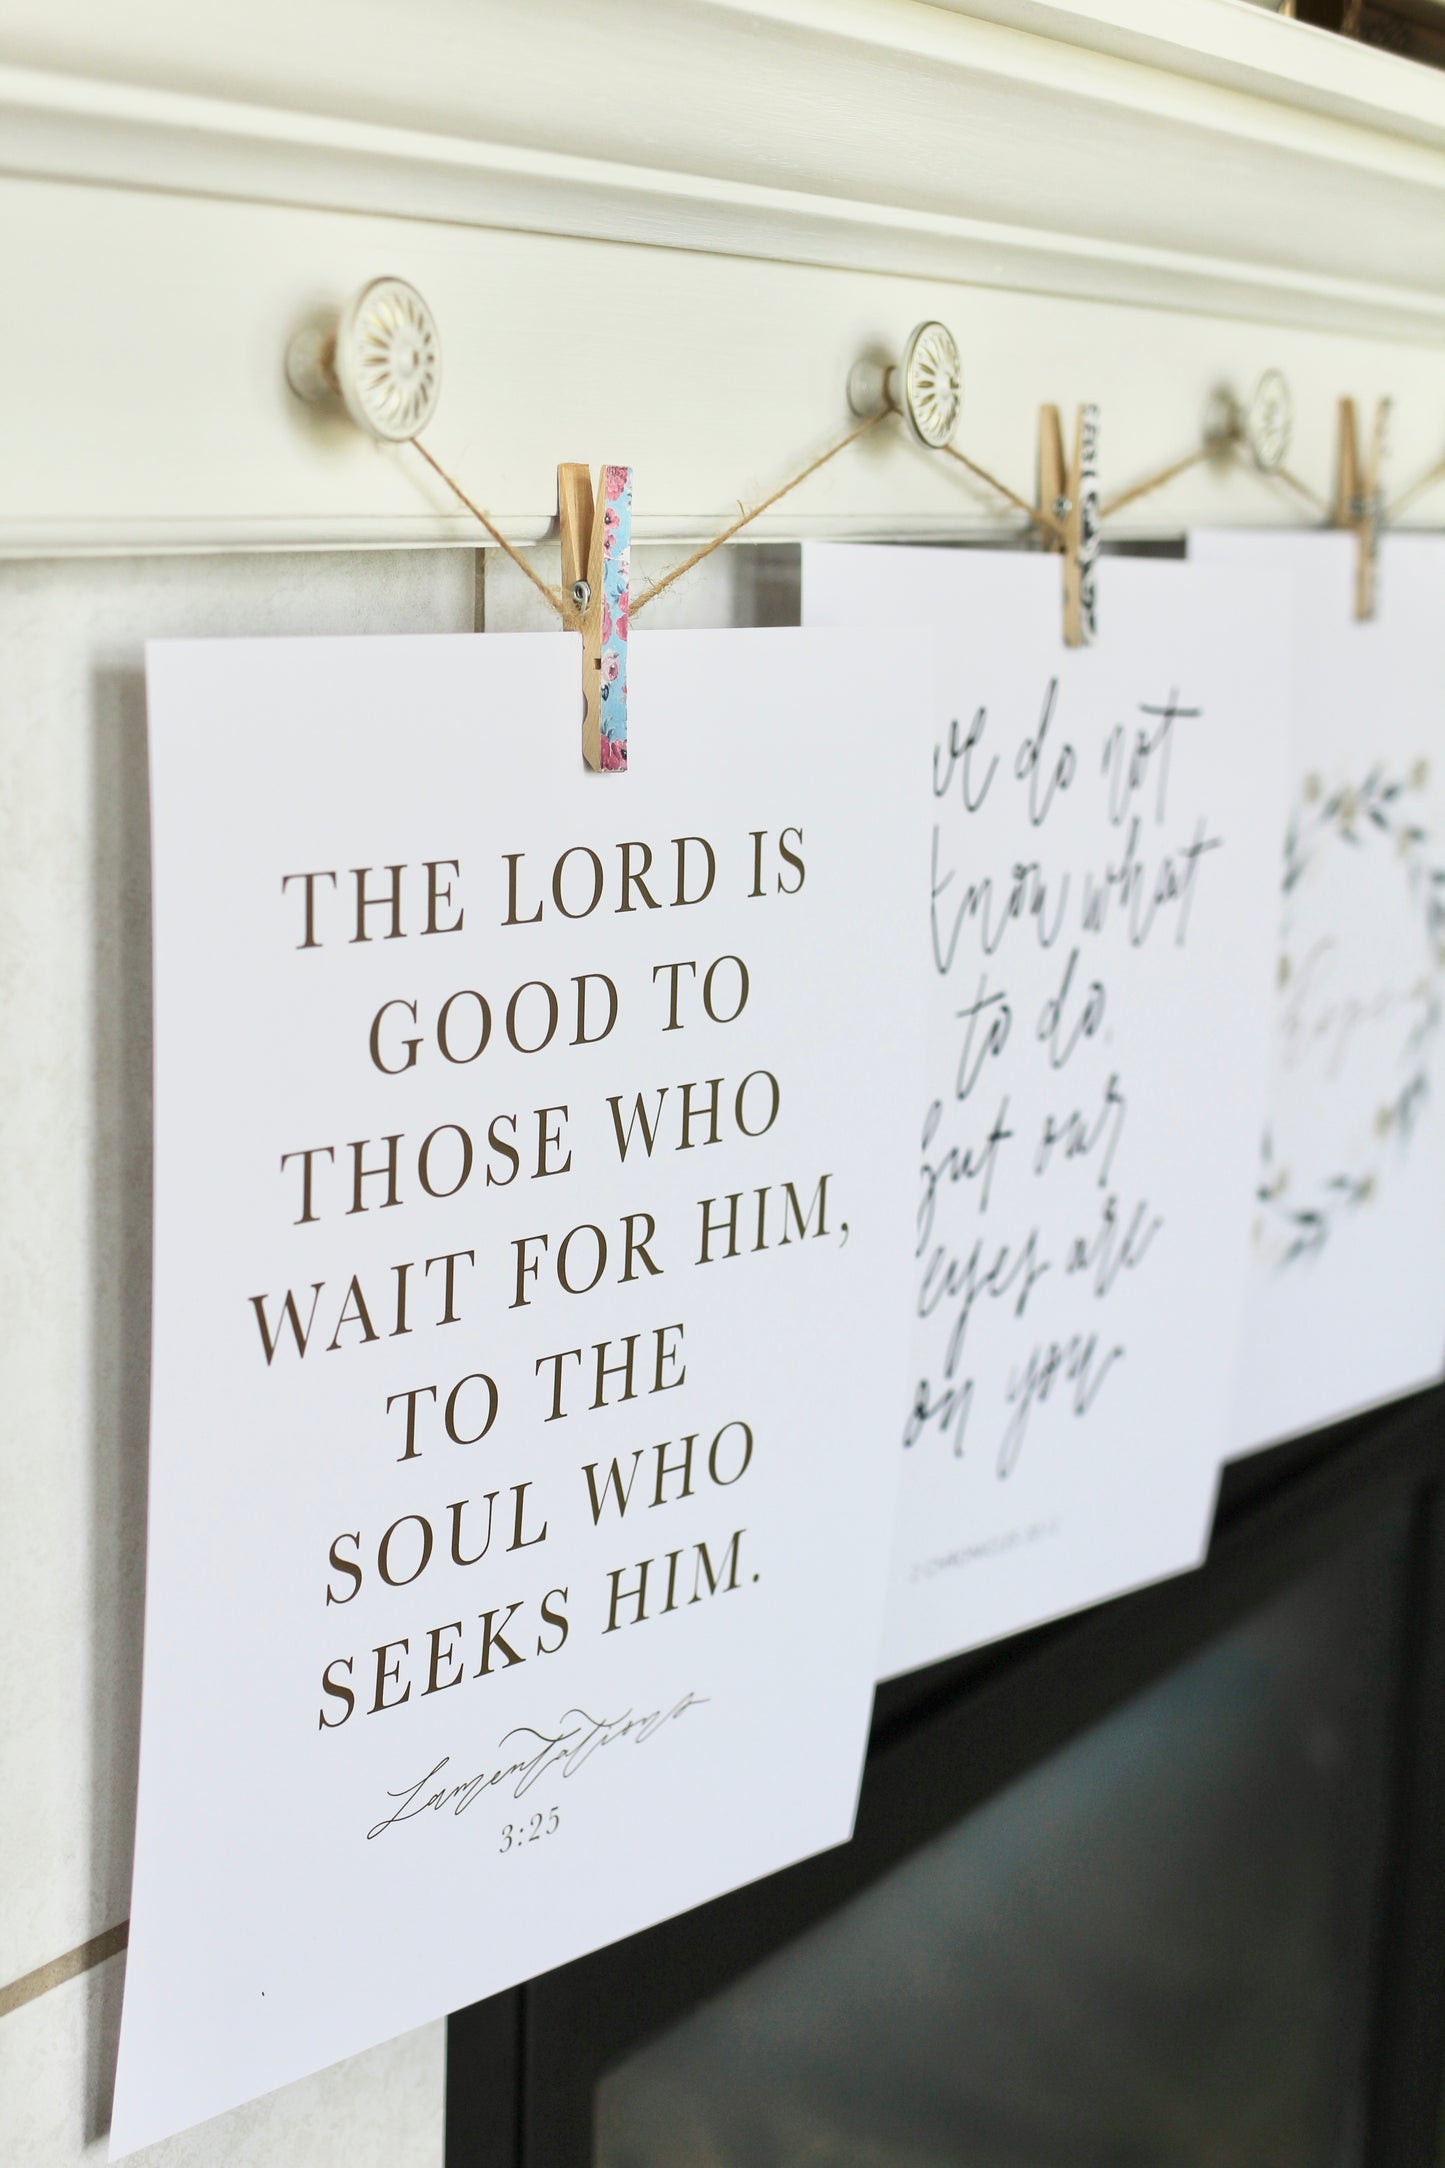 THE LORD IS
GOOD TO
THOSE WHO
WAIT FOR HIM,
TO THE
SOUL WHO
SEEKS HIM.
Lamentations
3:25
we do not
know what
to do,
but our
eyes are
on you
2 CHRONICLES
hope